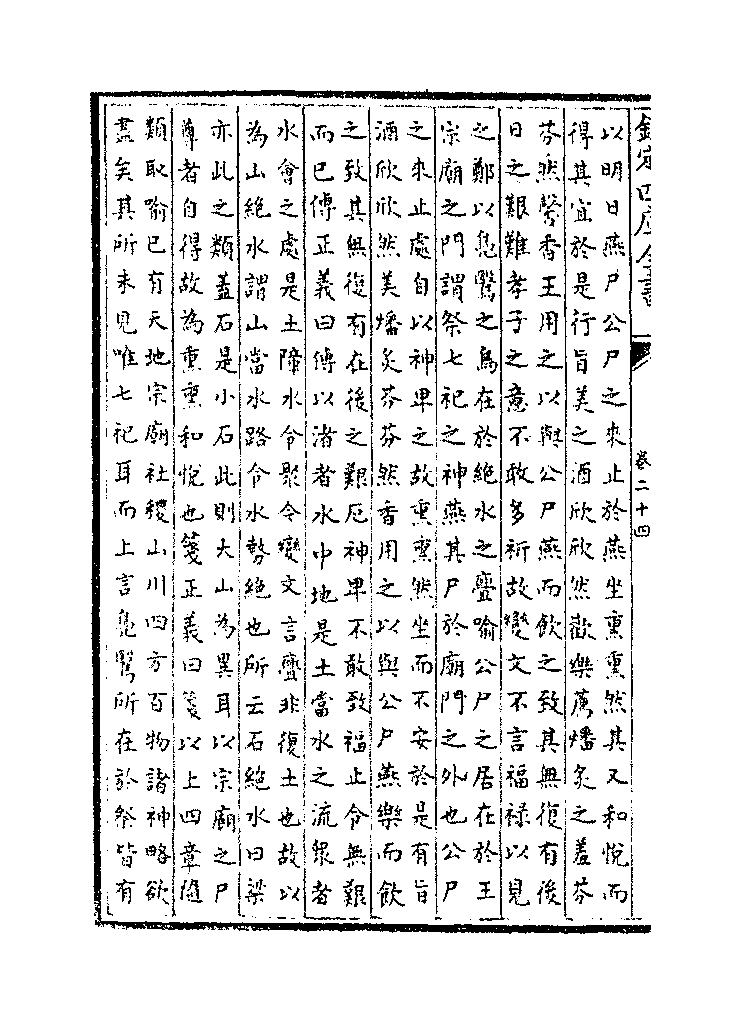 欽定四庫全書
卷二十四
以明日燕尸公尸之來止於燕坐熏熏然其又和悅而
得其宜於是行旨美之酒欣欣然歡樂薦燔炙之羞芬
芬然馨香王用之以與公尸燕而飲之致其無復有後
日之艱難孝子之意不敢多祈故變文不言福祿以見
之鄭以鳧鷖之鳥在於絶水之亹喻公尸之居在於王
宗廟之門謂祭七祀之神燕其尸於廟門之外也公尸
之來止處自以神卑之故熏熏然坐而不安於是有旨
酒欣欣然美燔炙芬芬然香用之以與公尸燕樂而飲
之致其無復有在後之艱厄神卑不敢致福止令無艱
而已傳正義曰傳以渚者水中地是土當水之流衆者
水會之處是土障水令聚令變文言亹非復土也故以
為山絶水謂山當水路令水勢絶也所云石絶水曰梁
亦此之類葢石是小石此則大山為異耳以宗廟之尸
尊者自得故為熏熏和悅也箋正義曰箋以上四章隨
類取喻已有天地宗廟社稷山川四方百物諸神略欲
盡矣其所未見唯七祀耳而上言鳧鷖所在於祭皆有